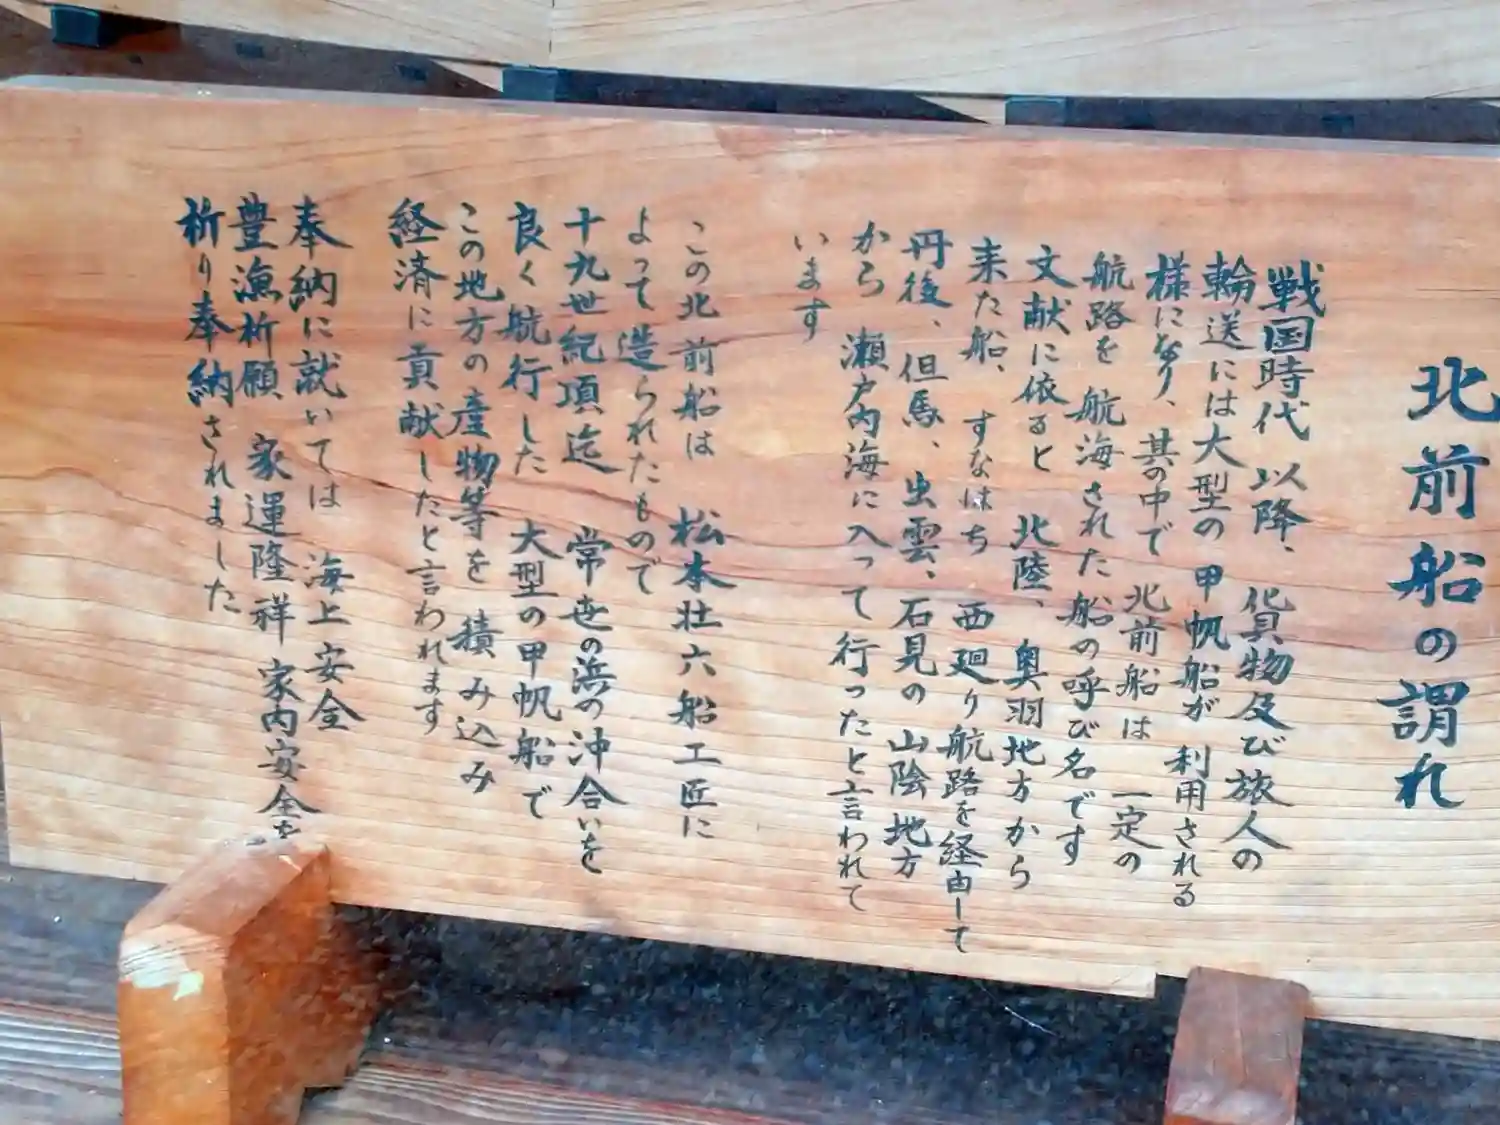 北前船の謂れ
戦国時代 以降、 貨物及び旅人の
輪送には大型の 甲帆船が 利用される
様になり、 其の中で 北前船は 一定の
航路を 航海された船の呼び名です
文献に依ると 北陸、 奥羽地方から
来た船、 すなはち 西廻り航路を経由して
丹後、但馬、出雲、石見の山陰地方
から 瀬戸内海に入って行ったと言われて
います
この北前船は 松本壮六船工匠に
よって造られたもので
十九世紀項迄 常世の浜の沖合いを
良く航行した 大型の甲帆船で
この地方の産物等を 積み込み
経済に貢献したと言われます
奉納に就いては 海上安全
豊漁祈願 家運隆祥 家内安全を
祈り奉納されました